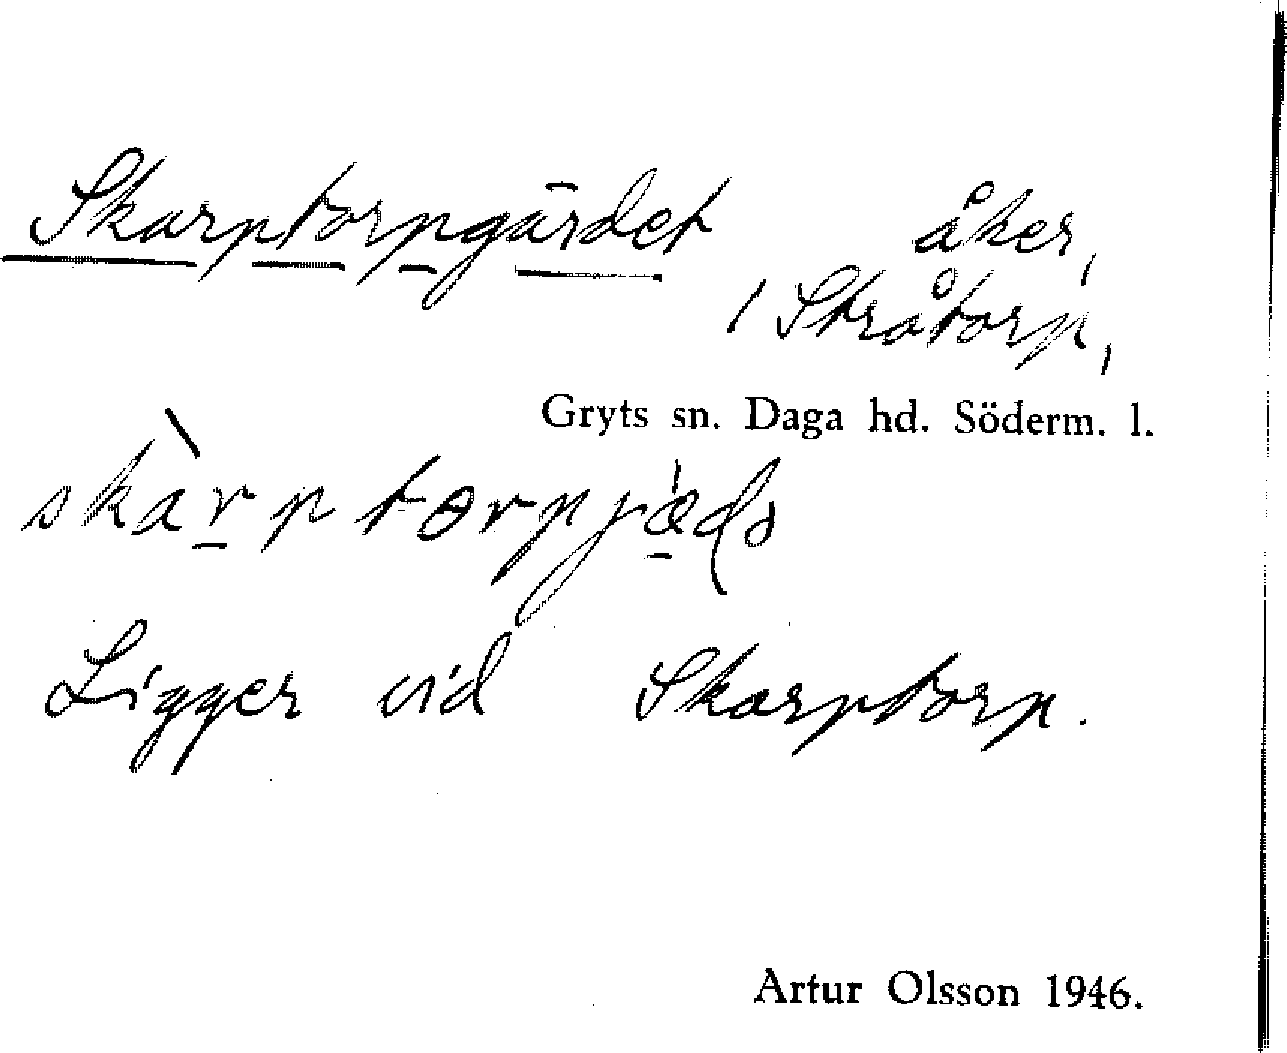 Skarptorpgärdet åker,
1 Stråtorp,
Gryts sn. Daga hd. Söderm. l.
skàrptɵrpjæ̀də
Ligger vid Skarptorp.
Artur Olsson 1946.